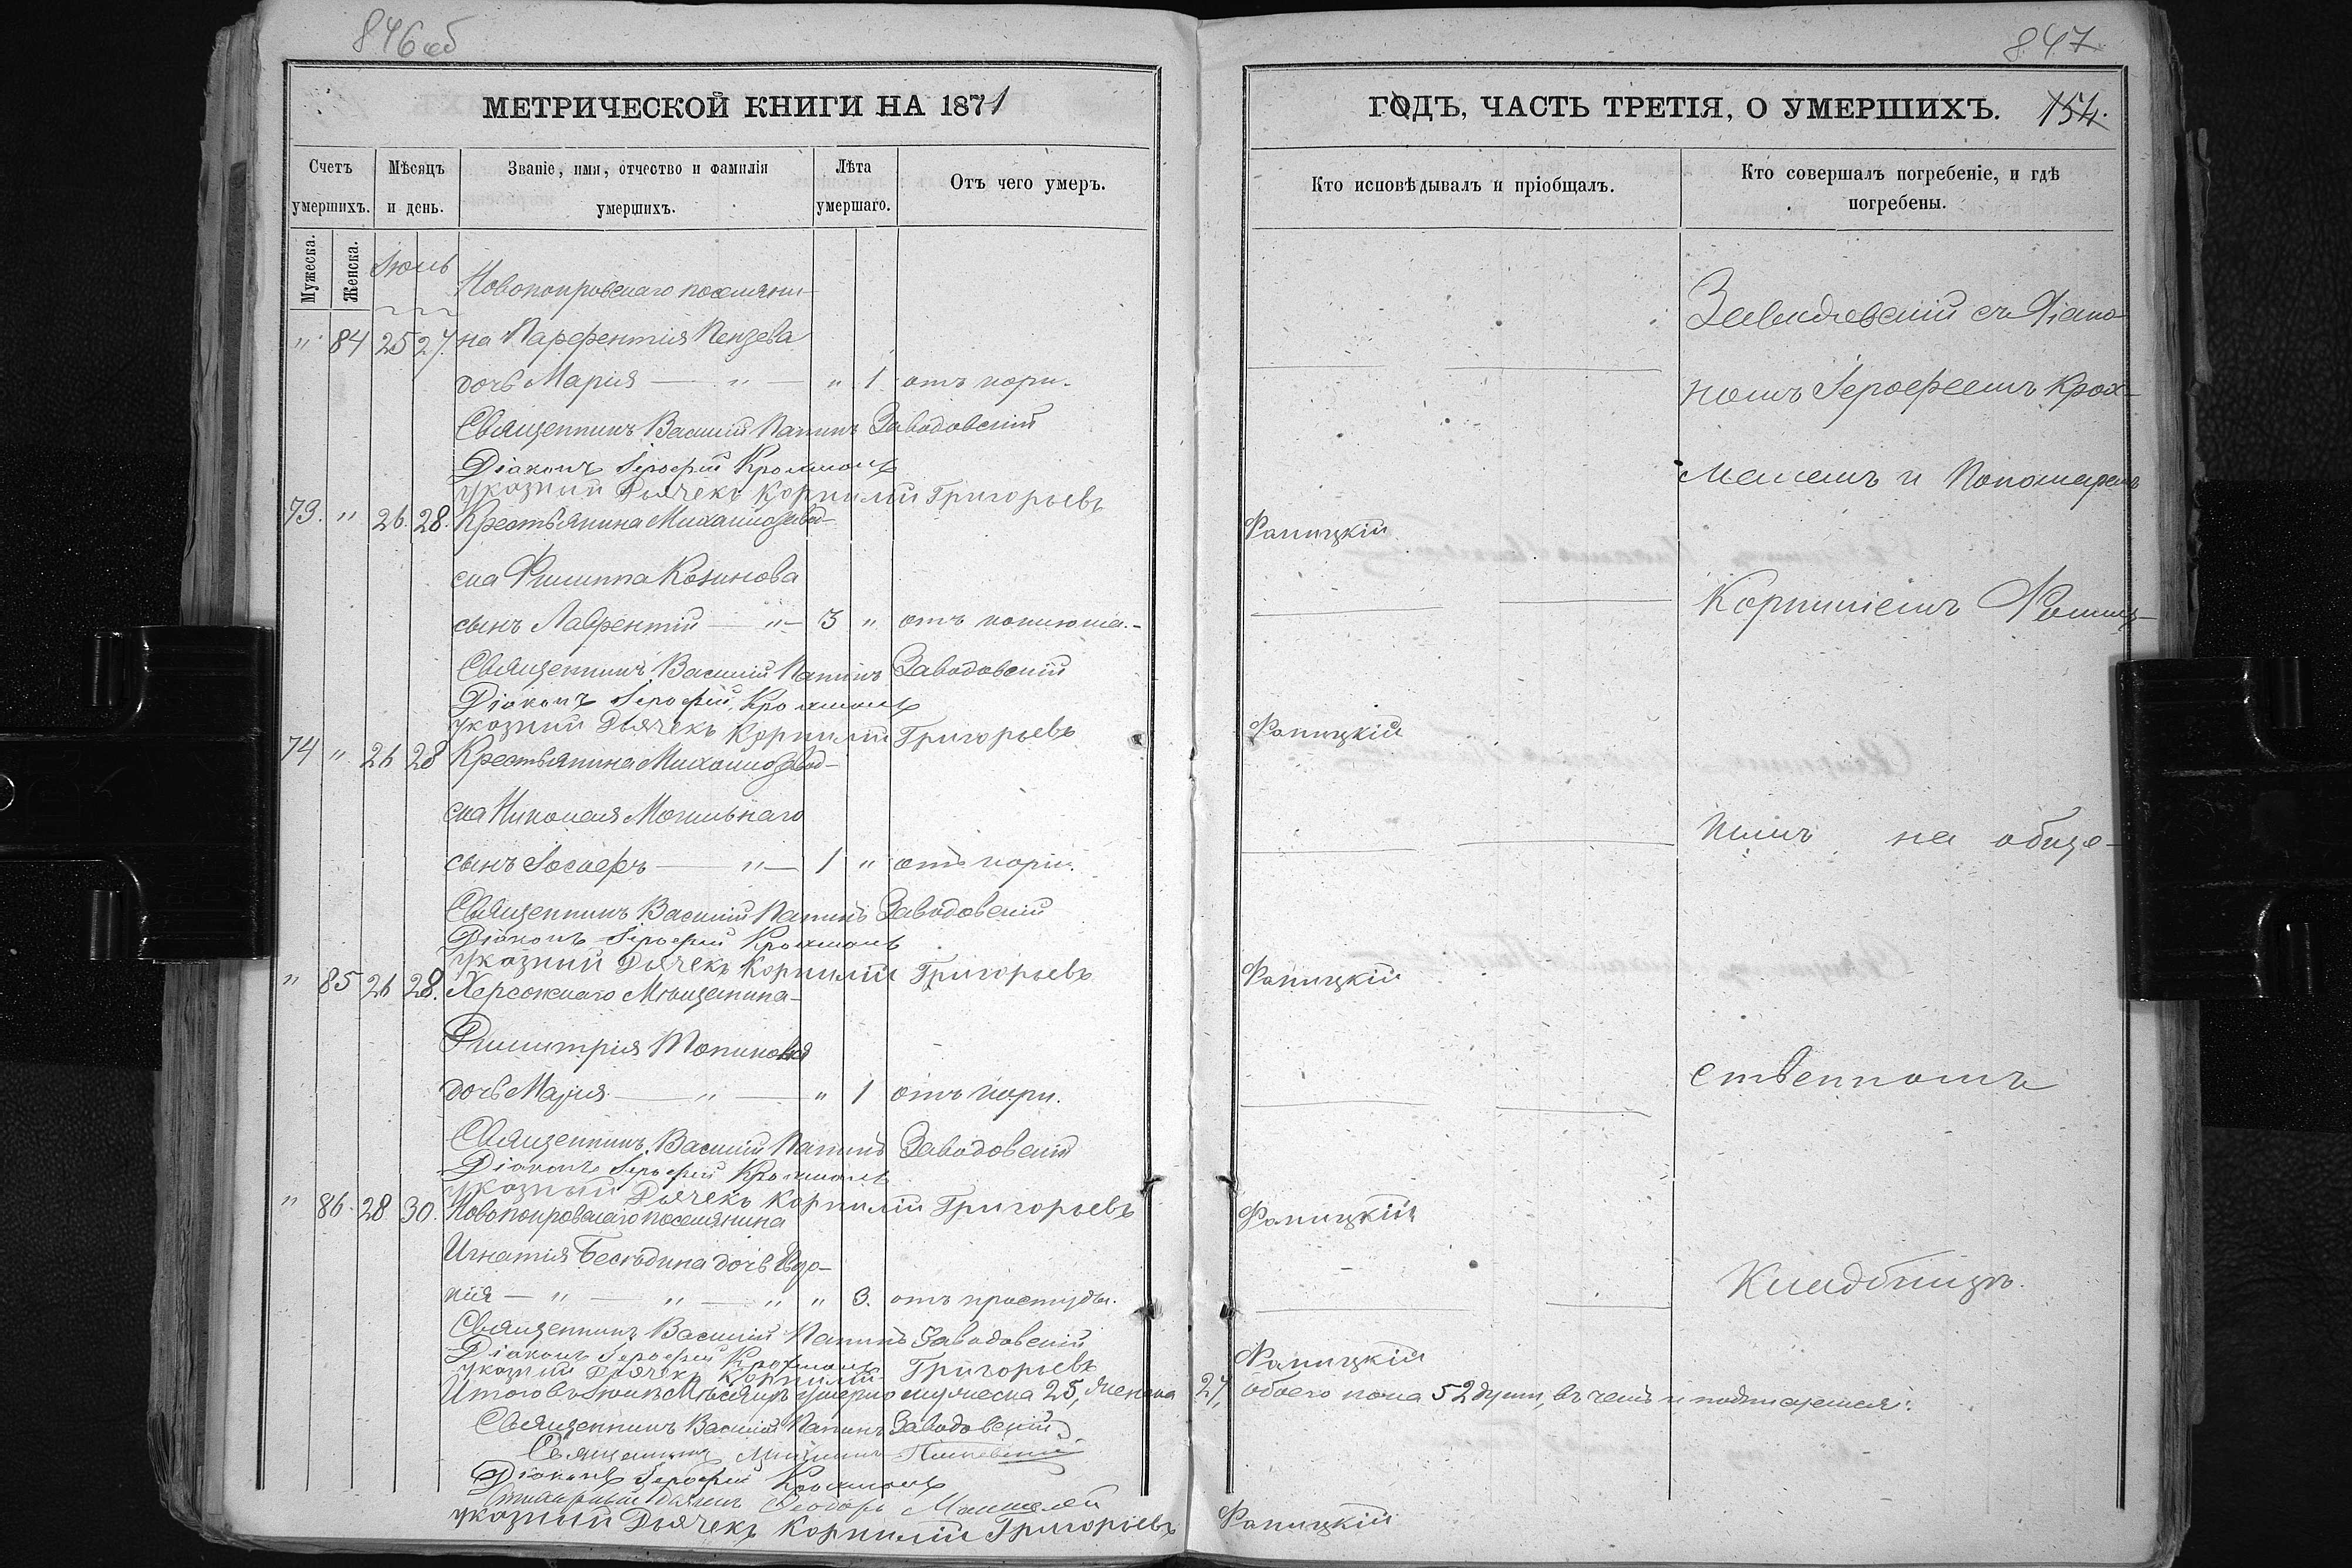 846 об
МЕТРИЧЕСКОЙ КНИГИ НА 1871
Счетъ умершихъ.
Мужеска.
Женска.
Мѣсяцъ и день.
Званіе, имя, отчество и фамилія умершихъ.
Лѣта умершаго.
Отъ чего умеръ.
Новопокровскаго поселяни-
" 84 25 27. на Парфентія Пензева
дочь Марія — " — " 1 отъ кори.
Священникъ Василій Папинъ Заводовскій
Діаконъ Іероѳей Крохмаль
указный Дьячекъ Корнилій Григорьевъ
73. " 26. 28. Крестьянина Михайлозавод-
ска Филиппа Козинова
сынъ Лаврентій — " — 3 " отъ коклюша.-
Священникъ Василій Папинъ Заводовскій
Діаконъ Іероѳей Крохмаль
указный Дьячекъ Корнилій Григорьевъ
74 " 26 28 Крестьянина Михайлозавод-
ска Николая Могильнаго
сынъ Іосифъ — " — 1 " отъ кори.
Священникъ Василій Папинъ Заводовскій
Діаконъ Іероѳей Крохмаль
указный Дьячекъ Корнилій Григорьевъ
" 85 26 28. Херсонскаго Мѣщанина-
Димитрія
дочь Марія — " — " 1 отъ кори.
Священникъ Василій Папинъ Заводовскій
Діаконъ Іероѳей Крохмаль
указный Дьячекъ Корнилій Григорьевъ
" 86. 28 30. Новопокровскаго поселянина
Игнатія дочь Евдо-
кія — " — " — " " 3. отъ простуды.
Священникъ Василій Папинъ Заводовскій
Діаконъ Іероѳей Крохмаль
указный Дьячекъ Корнилій Григорьевъ
Итого въ Мѣсяцѣ умерло мужеска 25, женска
Священникъ Василій Папинъ Заводовскій
Священникъ
Діаконъ Іероѳей Крохмаль
указный Дьячекъ Корнилій Григорьевъ
847
ГОДЪ, ЧАСТЬ ТРЕТІЯ, О УМЕРШИХЪ. 154.
Кто исповѣдывалъ и пріобщалъ.
Кто совершалъ погребеніе, и гдѣ погребены.
Заводовскій съ Діако-
номъ Іероѳеемъ Крох-
малемъ и Пономаремъ
Фапицкій
Корниліемъ Фапиц-
Фапицкій
кимъ на обще-
Фапицкій
ственномъ
Фапицкій
Кладбищѣ.
Фапицкій
27, обоего пола 52 души, въ чемъ и подписуемся:
Фапицкій